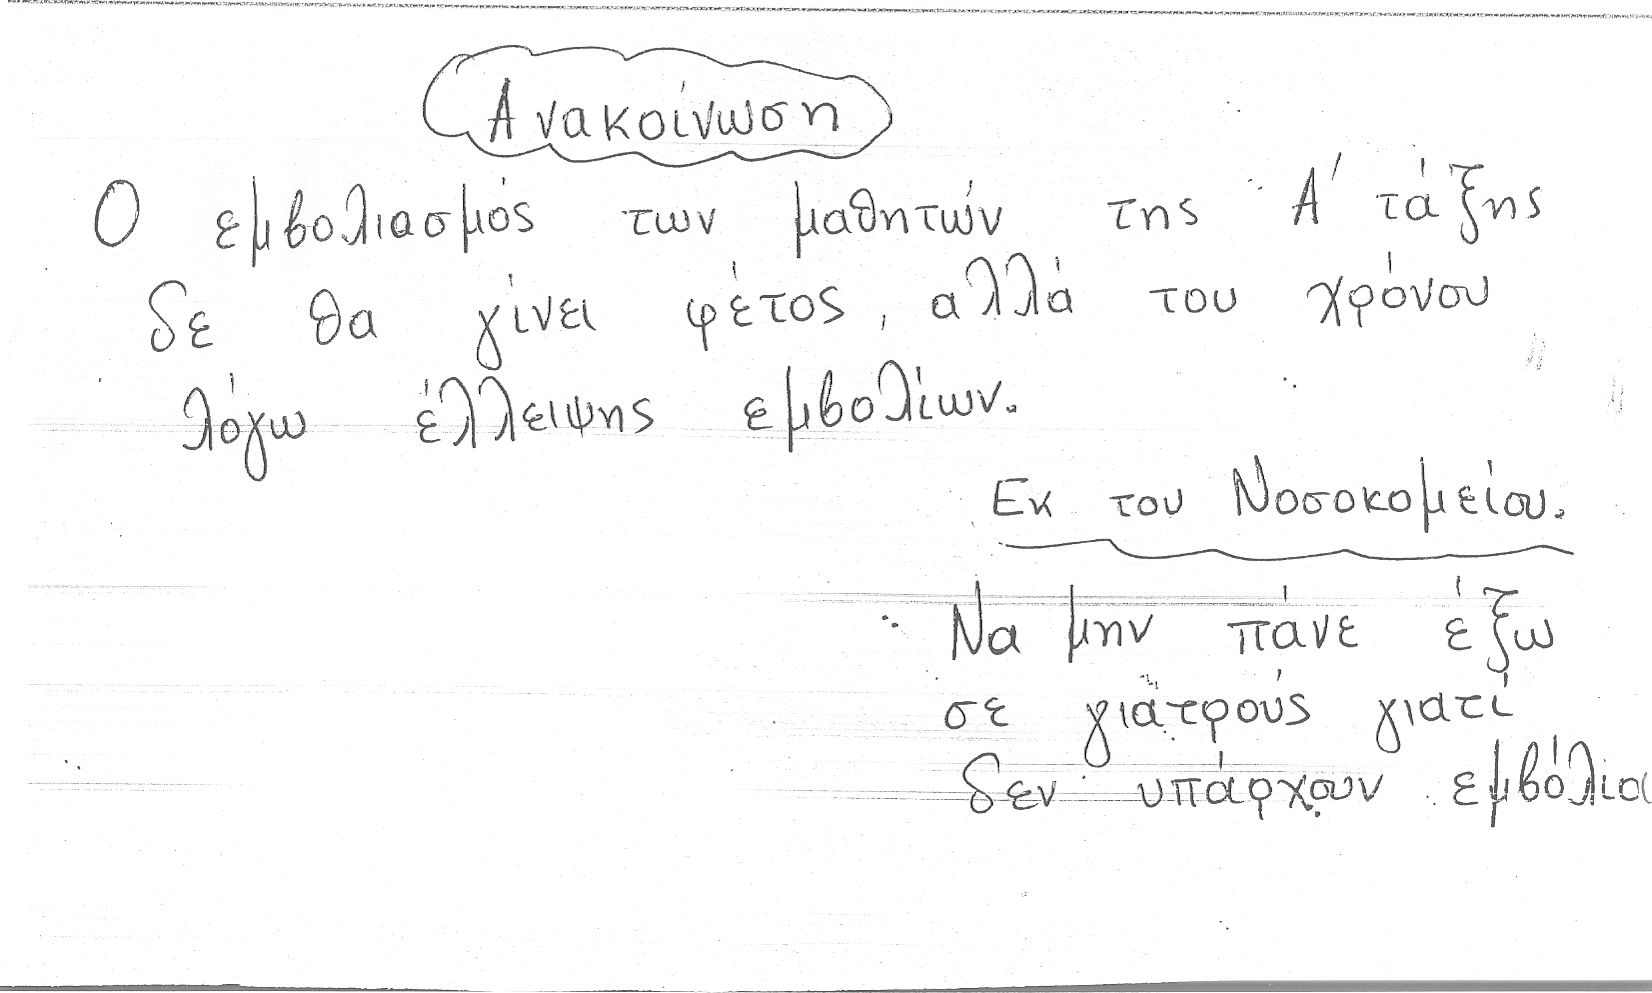 Ανακοίνωση
Ο εμβολιασμός των μαθητών της Α' τάξης
δε θα γίνει φέτος, αλλά του χρόνου
λόγω έλλειψης εμβολίων.
Εκ του Νοσοκομείου.
Να μην πάνε έξω
σε γιατρούς γιατί
δεν υπάρχουν εμβόλια